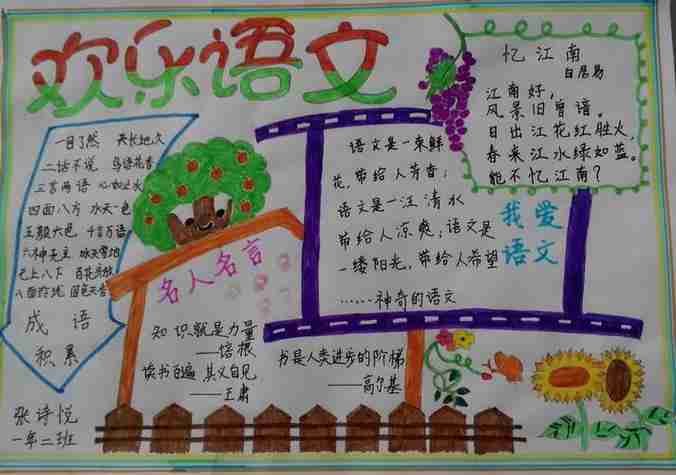 欢乐语文
一目了然 天长地久
二话不说 鸟语花香
三言两语
四面八方 水天一色
五颜六色 千言万语
六神无主 冰天雪地
七上八下 百花齐放
成语
积累
忆江南
白居易
江南好,
风景旧曾谙。
日出江花红胜火,
春来江水绿如蓝。
能不忆江南?
语文是一束鲜
花,带给人芳香;
语文是一汪清水
带给人凉爽;语文是
一缕阳光,带给人希望
……神奇的语文
我爱
语文
名人名言
知识就是力量
——培根
读书百遍 其义自见
——王肃
书是人类进步的阶梯
——高尔基
张诗悦
一年二班